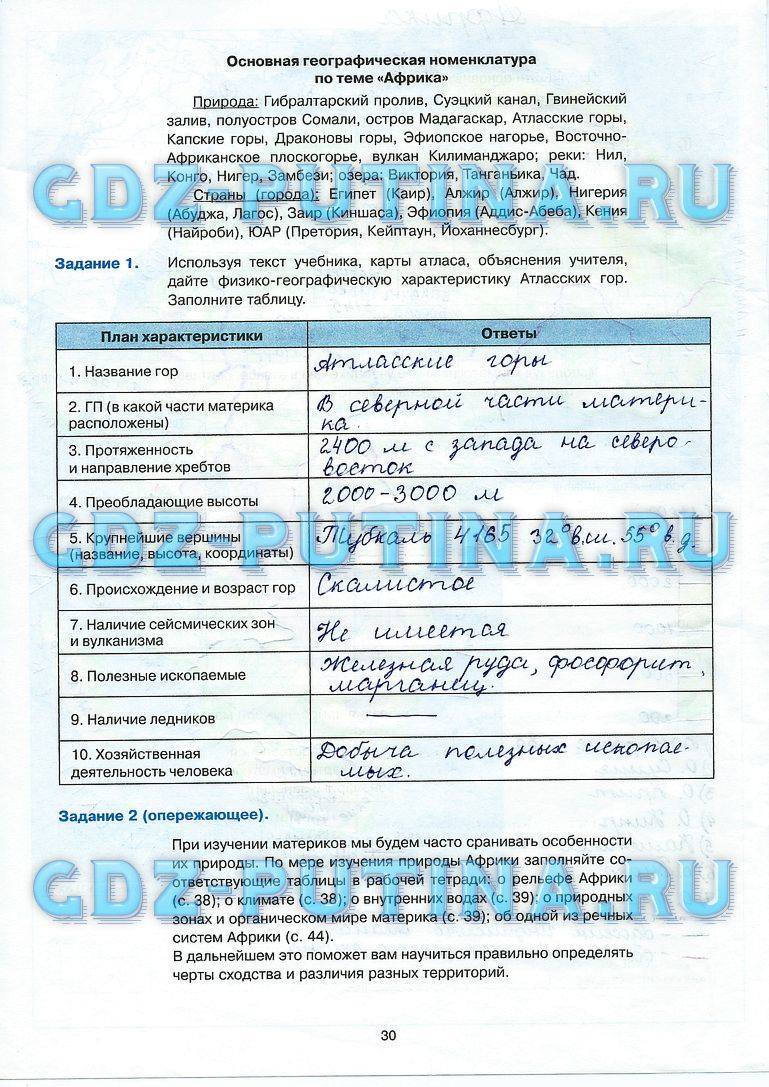 Основная географическая номенклатура
по теме «Африка»
Природа: Гибралтарский пролив, Суэцкий канал, Гвинейский
залив, полуостров Сомали, остров Мадагаскар, Атласские горы,
Капские горы, Драконовы горы, Эфиопское нагорье, Восточно-
Африканское плоскогорье, вулкан Килиманджаро; реки: Нил,
Конго, Нигер, Замбези; озера: Виктория, Танганьика, Чад.
GDZ-PUTINA.RU
Страны (города): Египет (Каир), Алжир (Алжир), Нигерия
(Абуджа, Лагос), Заир (Киншаса), Эфиопия (Аддис-Абеба), Кения
(Найроби), ЮАР (Претория, Кейптаун, Йоханнесбург).
Задание 1. Используя текст учебника, карты атласа, объяснения учителя,
дайте физико-географическую характеристику Атласских гор.
Заполните таблицу.
План характеристики Ответы
1. Название гор Атласские горы
2. ГП (в какой части материка
расположены)
В северной части матери-
ка.
3. Протяженность
и направление хребтов
2400 м с запада на северо-
восток
4. Преобладающие высоты 2000-3000 м
5. Крупнейшие вершины
(название, высота, координаты)
Тубкаль 4165 32°в.ш. 55°в.д.
GDZ-PUTINA.RU
6. Происхождение и возраст гор Скалистое
7. Наличие сейсмических зон
и вулканизма
Не имеется
8. Полезные ископаемые
Железная руда, фосфорит,
марганец.
9. Наличие ледников —
10. Хозяйственная
деятельность человека
Добыча полезных ископае-
мых.
Задание 2 (опережающее).
При изучении материков мы будем часто сранивать особенности
их природы. По мере изучения природы Африки заполняйте со-
ответствующие таблицы в рабочей тетради: о рельефе Африки
(с. 38); о климате (с. 38); о внутренних водах (с. 39); о природных
зонах и органическом мире материка (с. 39); об одной из речных
систем Африки (с. 44).
GDZ-PUTINA.RU
В дальнейшем это поможет вам научиться правильно определять
черты сходства и различия разных территорий.
30